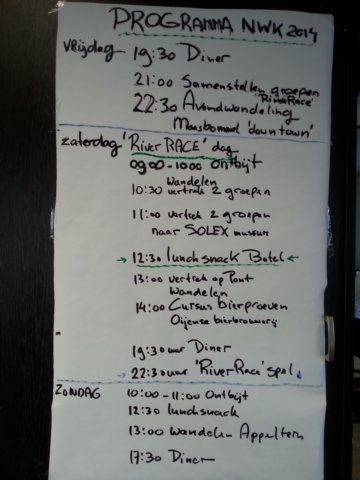 PROGRAMMA NWK 2014
Vrijdag 19:30 Diner
21:00 Samenstellen groepen
'RiverRace'
22:30 Avondwandeling
Maasbommel 'downtown'
Zaterdag 'River RACE' dag
09:00-10:00 Ontbijt
Wandelen
10:30 vertrek 2 groepen
11:00 vertrek 2 groepen
naar SOLEX museum
→ 12:30 lunchsnack Botel ←
13:00 vertrek op Pont
Wandelen
14:00 Cursus bierproeven
Oijense bierbrouwerij
19:30 uur Diner
→ 22:30 uur 'RiverRace' spel
ZONDAG 10:00 - 11:00 Ontbijt
12:30 lunchsnack
13:00 Wandelen Appeltern
17:30 Diner